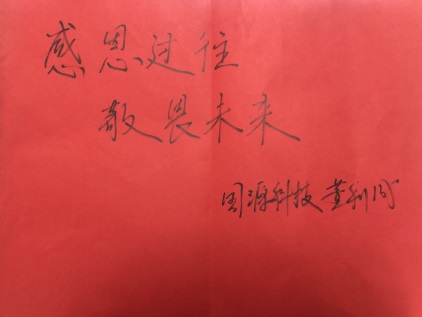 感恩过往
敬畏未来
国源科技 董利成